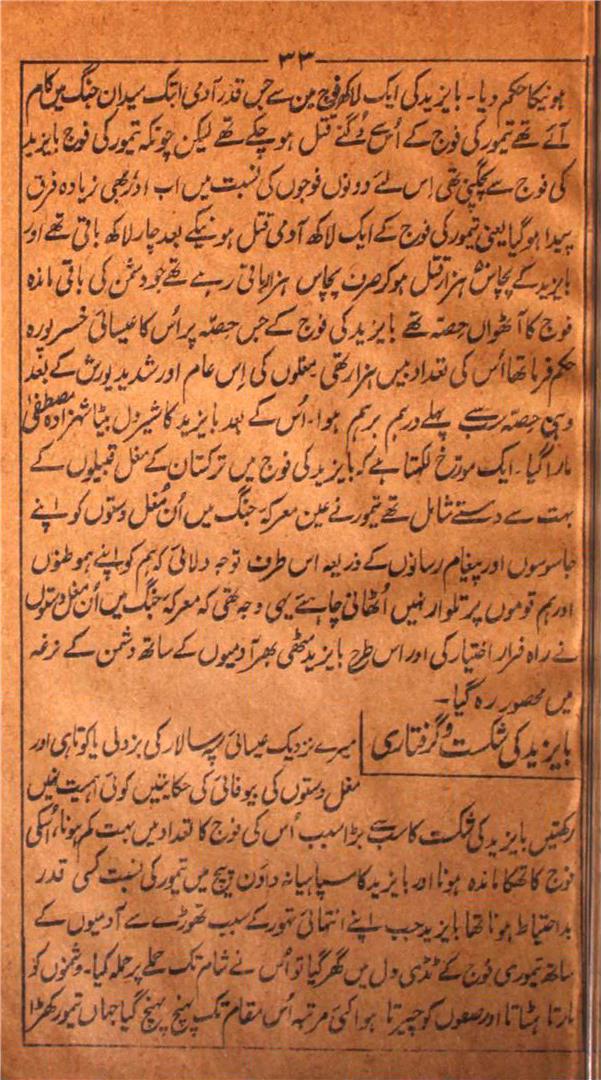 ۳۳
ہونیکا حکم دیا۔ بایزید کی ایک لاکھ فوج مین سے جس قدر آدمی ابتک میدان جنگ میں کام
آئے تھے تیمور کی فوج کے اُس سے دُگنے قتل ہو چکے تھے لیکن چونکہ تیمور کی فوج بایزید
کی فوج سے پچگنی تھی اِس لئے دونوں فوجوں کی نسبت میں اب اور بھی زیادہ فرق
پیدا ہو گیا یعنی تیمور کی فوج کے ایک لاکھ آدمی قتل ہونیکے بعد چار لاکھ باقی تھے اور
بایزید کے پچاس ہزار قتل ہو کر صرف پچاس ہزار باقی رہے تھے جو دشمن کی باقی ماندہ
فوج کا آٹھواں حصہ تھے بایزید کی فوج کے جس حصّہ پر اُس کا عیسائی خسر پورہ
حکم فرما تھا اُس کی تعداد بیس ہزار تھی۔ مغلوں کی اِس عام اور شدید یورش کے بعد
وہی حصّہ سب سے پہلے درہم برہم ہوا۔ اُس کے بعد بایزید کا شیر دل بیٹا شہزادہ مصطفیٰ
مارا گیا۔ ایک مورّخ لکھتا ہے کہ بایزید کی فوج میں ترکستان کے مغل قبیلوں کے
بہت سے دستے شامل تھے تیمور نے عین معرکۂ جنگ میں اُن مُغل دستوں کو اپنے
جاسوسوں اور پیغام رسانوں کے ذریعہ اس طرف توجہ دلائی کہ ہم کو اپنے ہموطنوں
اور ہم قوموں پر تلوار نہیں اُٹھانی چاہئے یہی وجہ تھی کہ معرکۂ جنگ میں اُن مغل دستوں
نے راہ فرار اختیار کی اور اس طرح بایزید مٹھی بھر آدمیوں کے ساتھ دشمن کے نرغہ
میں محصور رہ گیا۔
بایزید کی شکست و گرفتاری
میرے نزدیک عیسائی سپہ سالار کی بزدلی یا کوتاہی اور
مغل دستوں کی بیوفائی کی حکایتیں کوئی اہمیت نہیں
رکھتیں بایزید کی شکست کا سب سے بڑا سبب اُس کی فوج کا تعداد میں بہت کم ہونا، اُسکی
فوج کا تھکا ماندہ ہونا اور بایزید کا سپاہیانہ داؤن پیچ میں تیمور کی نسبت کسی قدر
بد احتیاط ہونا تھا بایزید جب اپنے انتہائی تہور کے سبب تھوڑے سے آدمیوں کے
ساتھ تیموری فوج کے ٹڈی دل میں گھر گیا تو اُس نے شام تک حملے پر حملہ کیا۔ دشمنوں کو
مارتا ہٹاتا اور صفوں کو چیرتا ہوا کئی مرتبہ اُس مقام تک پہنچ پہنچ گیا جہاں تیمور کھڑا